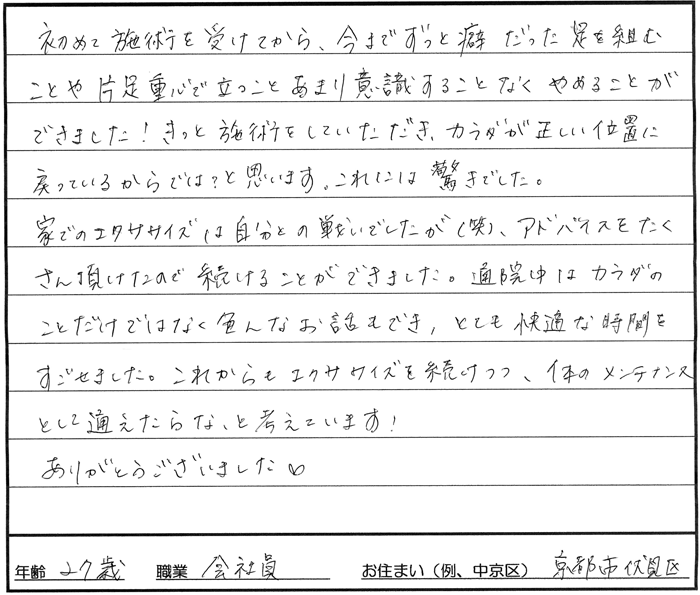 初めて施術を受けてから、今までずっと癖だった足を組む
ことや片足重心で立つことあまり意識することなくやめることが
できました！きっと施術をしていただき、カラダが正しい位置に
戻っているからでは？と思います。これには驚きでした。
家でのエクササイズは自分との戦いでしたが（笑）、アドバイスをたく
さん頂けたので続けることができました。通院中はカラダの
ことだけではなく色んなお話もでき、とても快適な時間を
すごせました。これからもエクササイズを続けつつ、体のメンテナンス
として通えたらな、と考えています！
ありがとうございました♡
年齢 27歳 職業 会社員 お住まい（例、中京区） 京都市伏見区